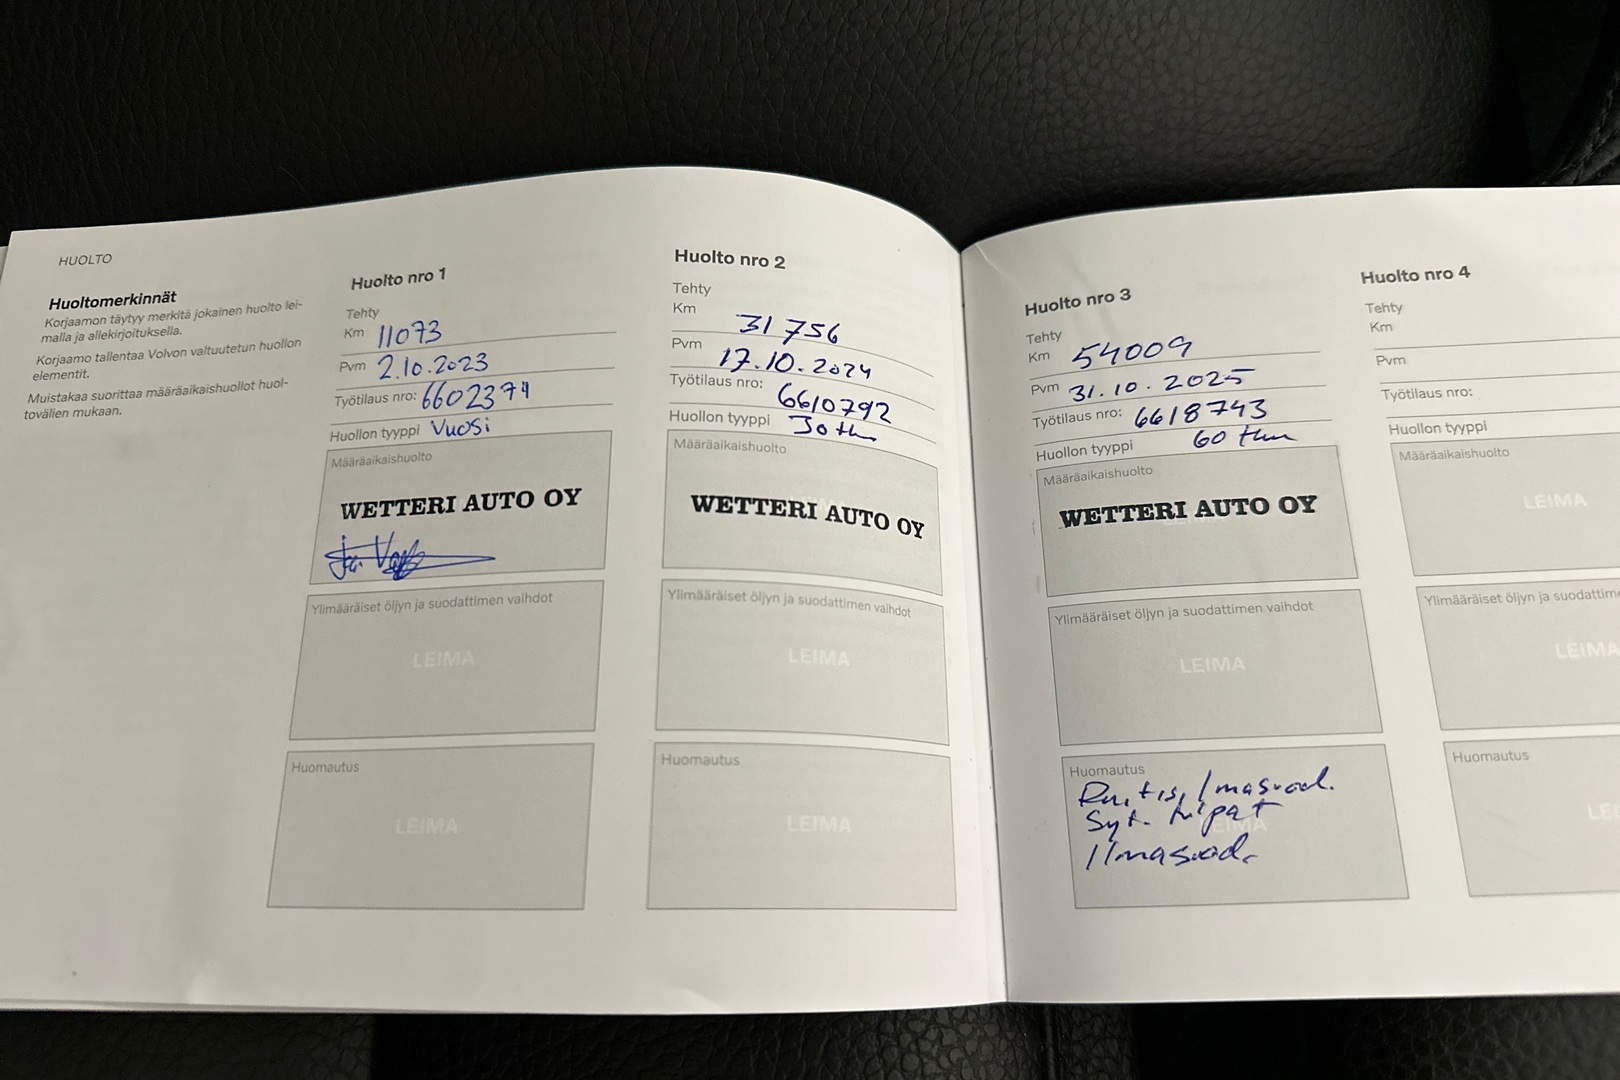 HUOLTO
Huoltomerkinnät
Korjaamon täytyy merkitä jokainen huolto lei-
malla ja allekirjoituksella.
Korjaamo tallentaa Volvon valtuutetun huollon
elementit.
Muistakaa suorittaa määräaikaishuollot huol-
tovälien mukaan.
Huolto nro 1
Tehty
Km 11073
Pvm 2.10.2023
Työtilaus nro: 6602374
Huollon tyyppi Vuosi
Määräaikaishuolto
WETTERI AUTO OY
Ylimääräiset öljyn ja suodattimen vaihdot
LEIMA
Huomautus
LEIMA
Huolto nro 2
Tehty
Km 31 756
Pvm 17.10.2024
Työtilaus nro: 6610792
Huollon tyyppi 30 tkm
Määräaikaishuolto
WETTERI AUTO OY
Ylimääräiset öljyn ja suodattimen vaihdot
LEIMA
Huomautus
LEIMA
Huolto nro 3
Tehty
Km 54009
Pvm 31.10.2025
Työtilaus nro: 6618743
Huollon tyyppi 60 tkm
Määräaikaishuolto
WETTERI AUTO OY
Ylimääräiset öljyn ja suodattimen vaihdot
LEIMA
Huomautus
Raitis, Ilmasuod.
Syt. tulpat
LEIMA
Ilmasuod.
Huolto nro 4
Tehty
Km
Pvm
Työtilaus nro:
Huollon tyyppi
Määräaikaishuolto
LEIMA
Ylimääräiset öljyn ja suodattime
LEIMA
Huomautus